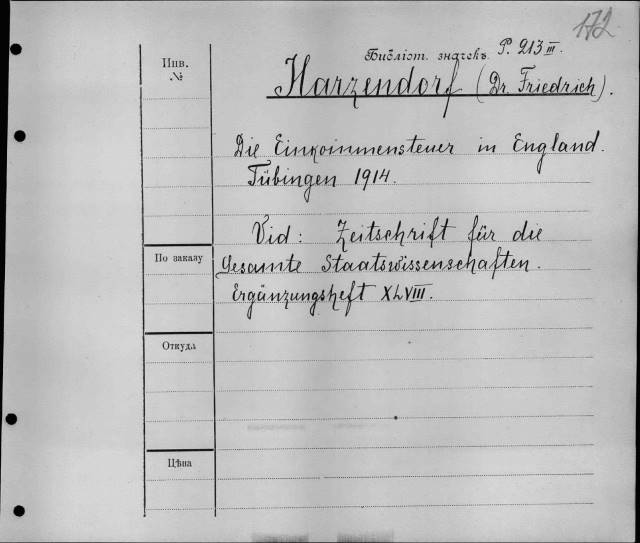 172.
Библіот. значекъ P. 213 III.
Инв.
№
Harzendorf (Dr. Friedrich).
Die Einkoinmensteuer in England.
Tübingen 1914.
Vid: Zeitschrift für die
По заказу
Gesamte Staatswissenschaften.
Ergänzungsheft XLVIII.
Откуда
Цѣна